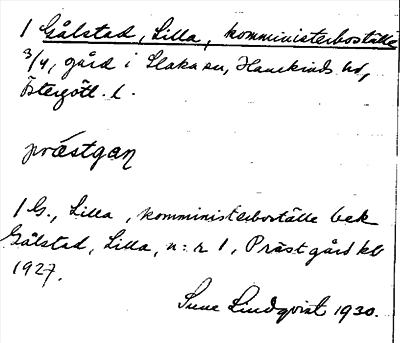 1 Gålstad, Lilla, komministerboställe
3/4, gård i Slaka sn, Hanekinds hd,
Östergötl. l.
prästgån
1 G., Lilla, komministerboställe bek
Gålstad, Lilla, n:r 1, Prästgård kb
1927.
Sune Lindqvist 1930.